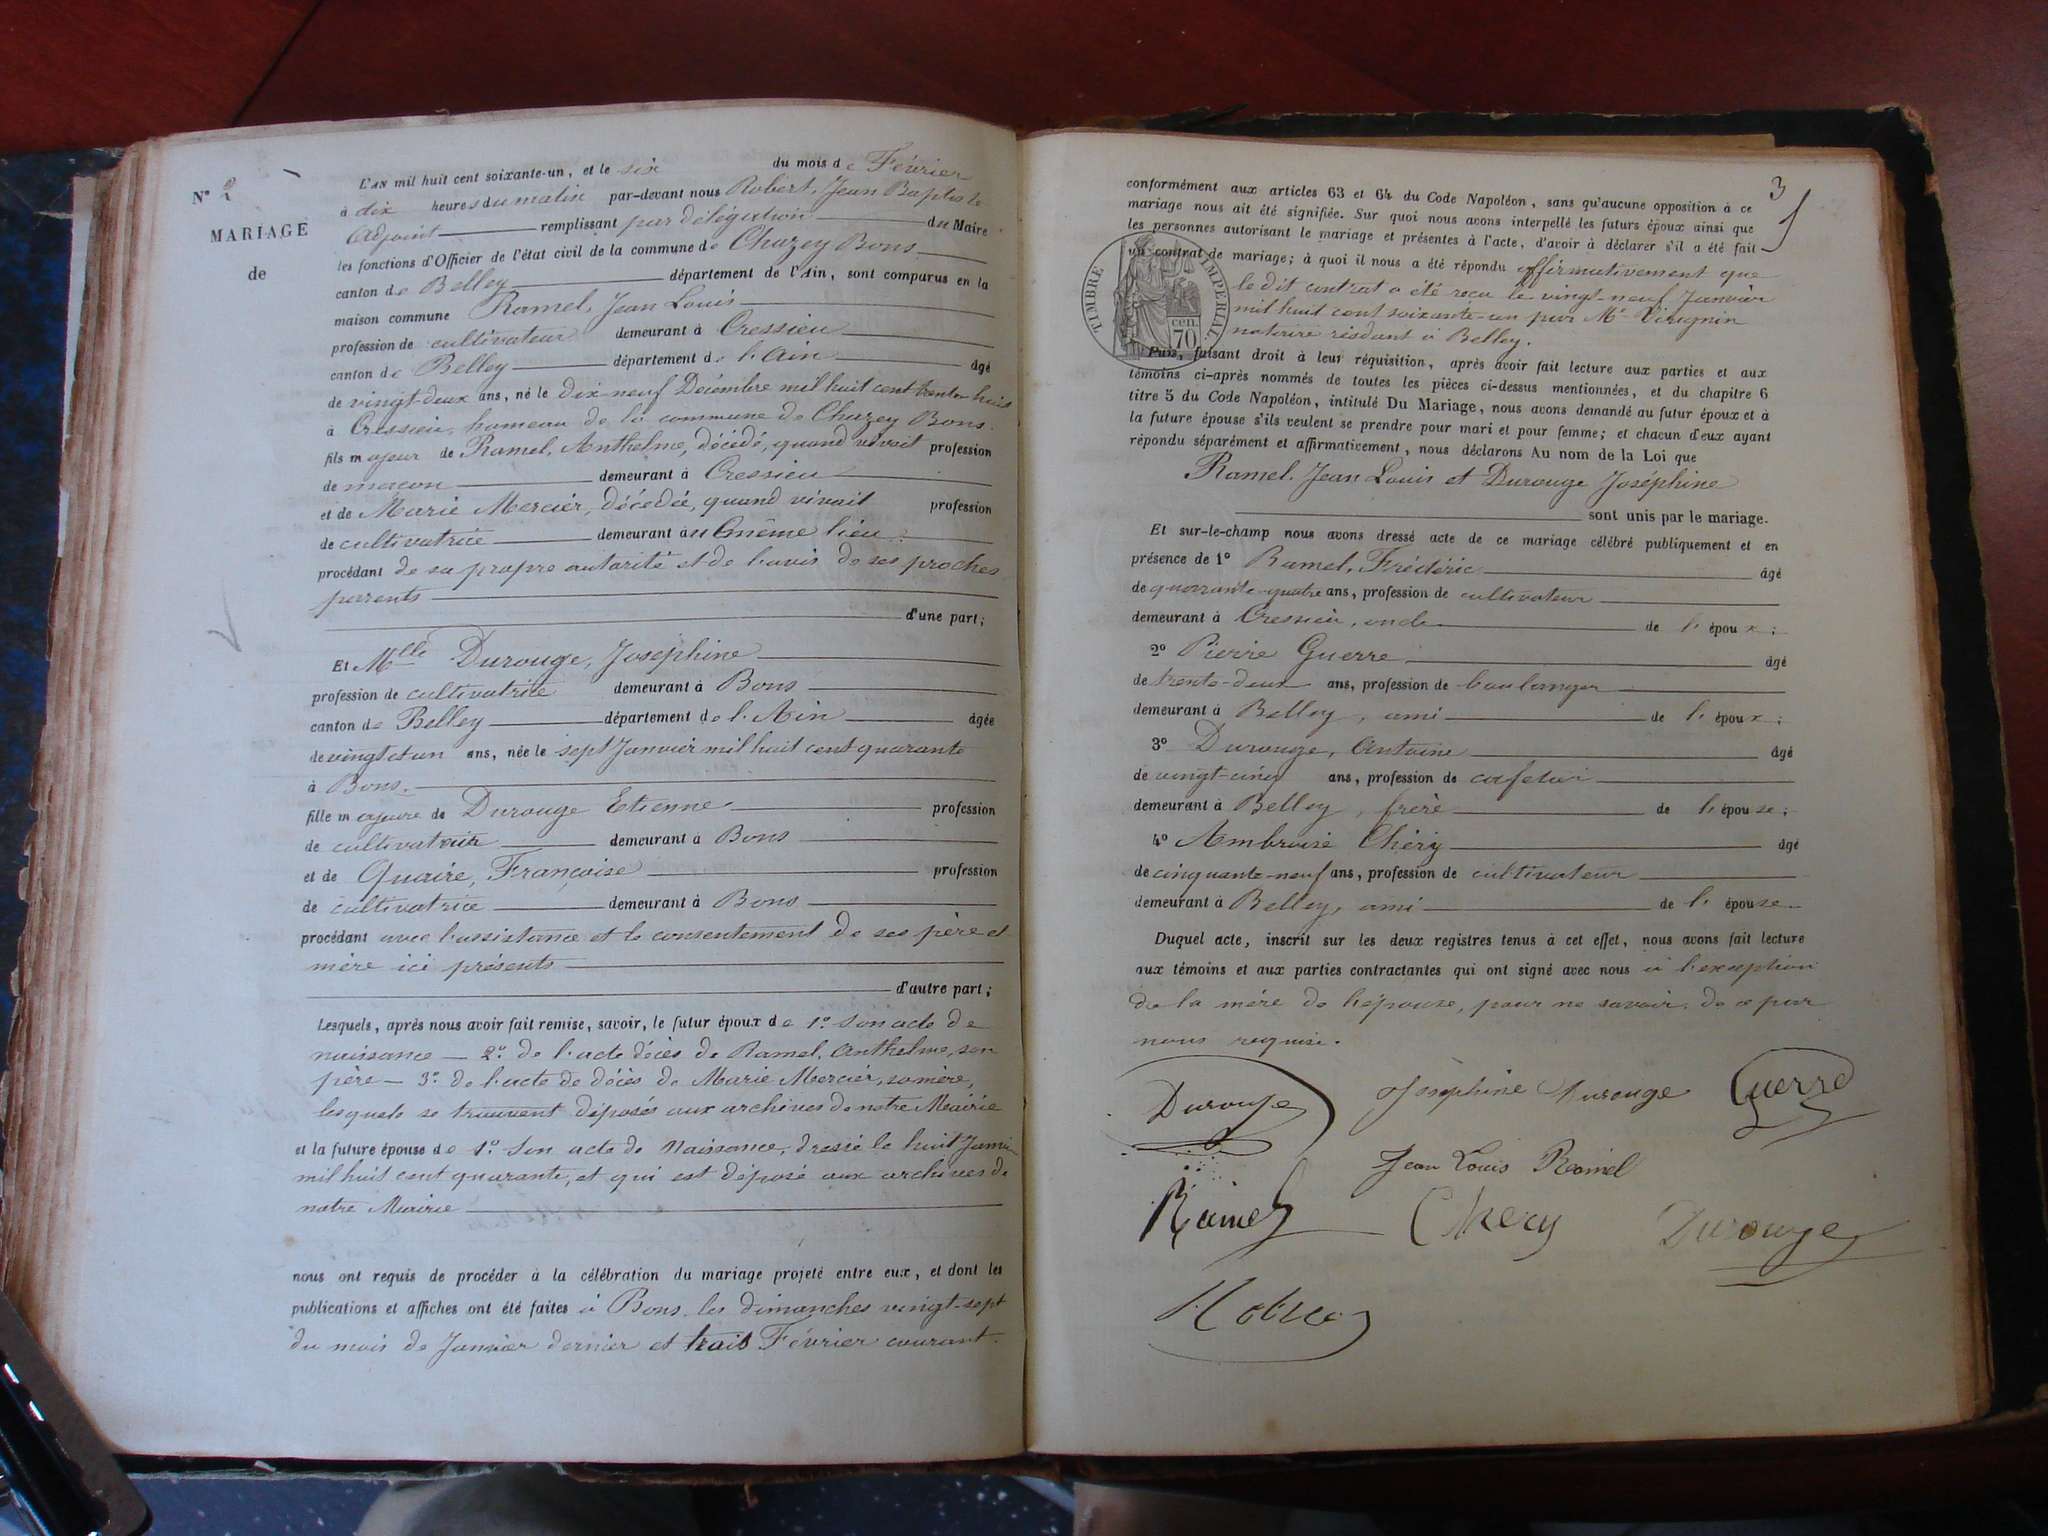 N° 2
MARIAGE
de
L'AN mil huit cent soixante-un, et le six du mois de Février
à dix heures du matin par-devant nous Robert, Jean Baptiste
Adjoint remplissant par délégation du Maire
les fonctions d'Officier de l'état civil de la commune de Chazey Bons
canton de Belley département de l'Ain, sont comparus en la
maison commune Ramel, Jean Louis
profession de cultivateur demeurant à Cressieu
canton de Belley département de l'Ain âgé
de vingt-deux ans, né le dix-neuf Décembre mil huit cent trente huit
à Cressieu, hameau de la commune de Chazey Bons.
fils majeur de Ramel, Anthelme, décédé, quand vivait profession
de maçon demeurant à Cressieu
et de Marie Mercier, décédée, quand vivait profession
de cultivatrice demeurant au même lieu
procédant de sa propre autorité et de l'avis de ses proches
parents
d'une part;
Et Mlle Durouge, Joséphine
profession de cultivatrice demeurant à Bons
canton de Belley département de l'Ain âgée
de vingt et un ans, née le sept Janvier mil huit cent quarante
à Bons.
fille majeure de Durouge Etienne profession
de demeurant à Bons
et de Quaire, Françoise profession
de cultivatrice demeurant à Bons
procédant avec l'assistance et le consentement de ses père et
mère ici présents
d'autre part;
Lesquels, après nous avoir fait remise, savoir, le futur époux de 1° Son acte de
naissance — 2° de l'acte décès de Ramel, Anthelme, son
père — 3° de l'acte de décès de Marie Mercier, sa mère,
lesquels se trouvent déposés aux archives de notre Mairie
et la future épouse de 1° Son acte de Naissance, dressé le huit Janvier
mil huit cent quarante, et qui est déposé aux archives de
notre Mairie
nous ont requis de procéder à la célébration du mariage projeté entre eux, et dont les
publications et affiches ont été faites à Bons les dimanches vingt-sept
du mois de Janvier dernier et trois Février courant.
3
conformément aux articles 63 et 64 du Code Napoléon, sans qu'aucune opposition à ce
mariage nous ait été signifiée. Sur quoi nous avons interpellé les futurs époux ainsi que
les personnes autorisant le mariage et présentes à l'acte, d'avoir à déclarer s'il a été fait
un contrat de mariage; à quoi il nous a été répondu affirmativement que
le dit contrat a été reçu le vingt-neuf Janvier
mil huit cent soixante-un par Me
notaire résidant à Belley.
TIMBRE IMPERIAL
70 cen.
Puis, faisant droit à leur réquisition, après avoir fait lecture aux parties et aux
témoins ci-après nommés de toutes les pièces ci-dessus mentionnées, et du chapitre 6
titre 5 du Code Napoléon, intitulé Du Mariage, nous avons demandé au futur époux et à
la future épouse s'ils veulent se prendre pour mari et pour femme; et chacun d'eux ayant
répondu séparément et affirmativement, nous déclarons Au nom de la Loi que
Ramel, Jean Louis et Durouge Joséphine
sont unis par le mariage.
Et sur-le-champ nous avons dressé acte de ce mariage célébré publiquement et en
présence de 1° Ramel, Fréderic âgé
de quarante-quatre ans, profession de cultivateur
demeurant à Cressieu, oncle de l'époux;
2° Pierre Guerre âgé
de trente-deux ans, profession de boulanger
demeurant à Belley, ami de l'époux;
3° Durouge, Antoine âgé
de vingt-cinq ans, profession de cafetier
demeurant à Belley, frère de l'épouse;
4° Ambroise Chéry âgé
de cinquante-neuf ans, profession de cultivateur
demeurant à Belley, ami de l'épouse
Duquel acte, inscrit sur les deux registres tenus à cet effet, nous avons fait lecture
aux témoins et aux parties contractantes qui ont signé avec nous à l'exception
de la mère de l'épouse, pour ne savoir, de ce par
nous requise.
Durouge Joséphine Durouge Guerre
Jean Louis Ramel
Ramel Chery Durouge
Robert